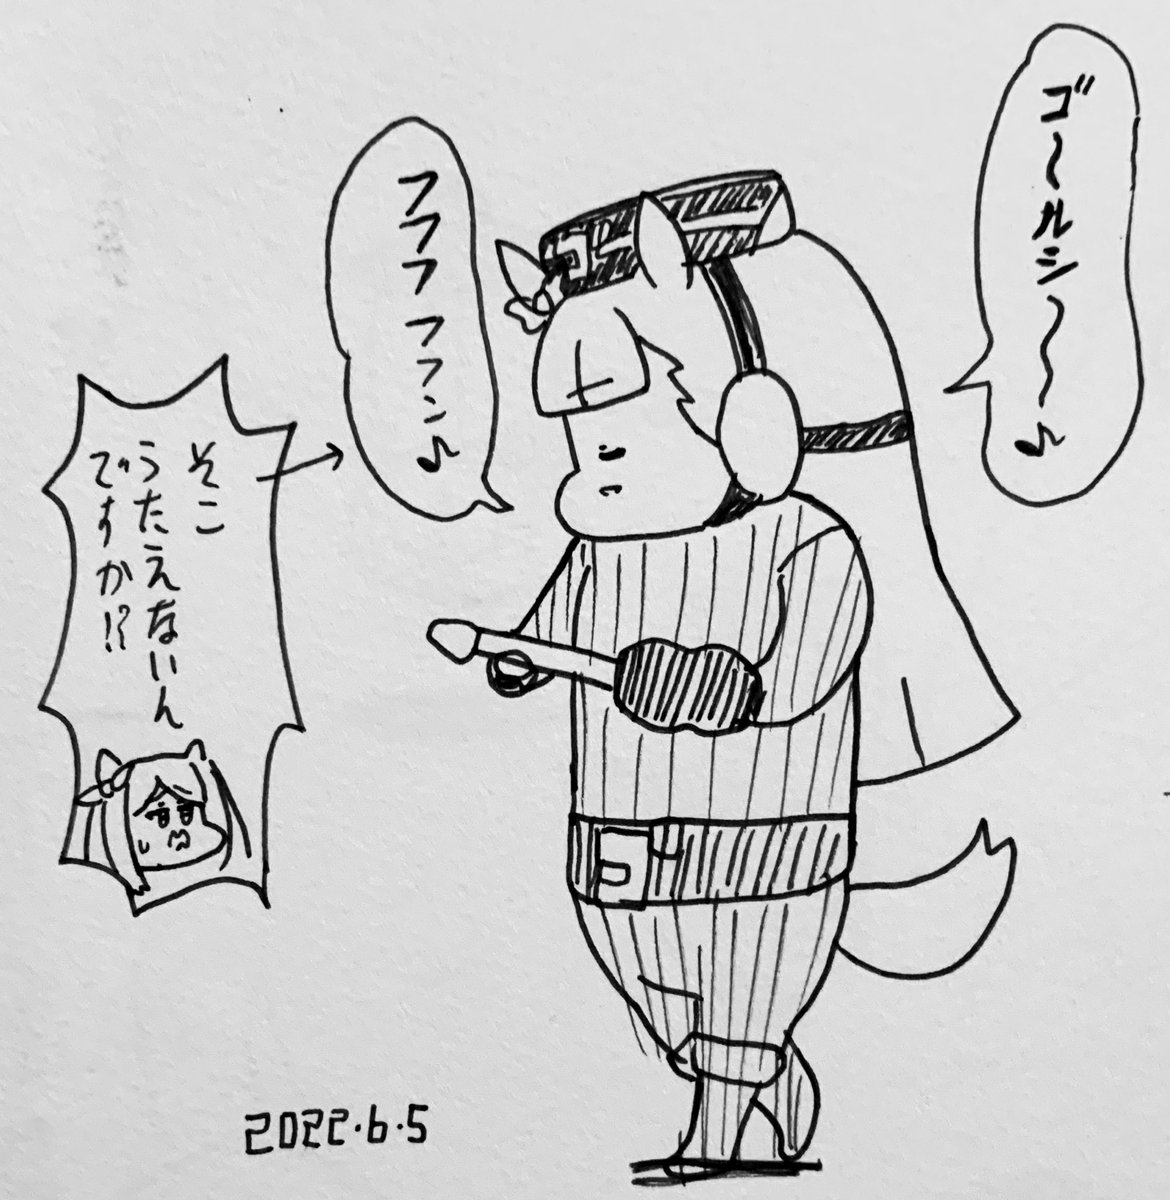 ゴ〜ルシ〜〜♪
フフフフフン♪
そこ
うたえないん
ですか!?
2022.6.5